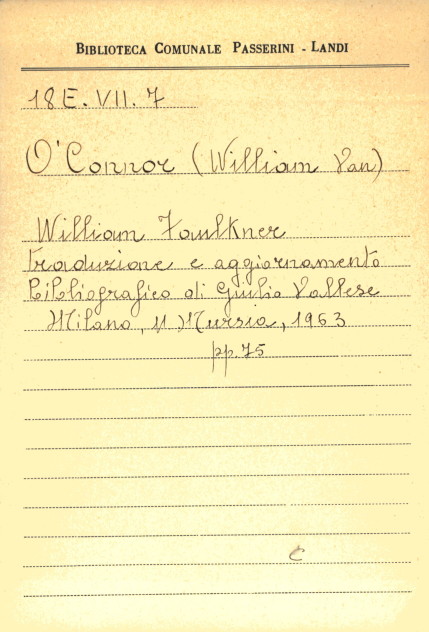 BIBLIOTECA COMUNALE PASSERINI - LANDI
18 E. VII. 7
O'Connor (William Van)
William Faulkner
Traduzione e aggiornamento
bibliografico di Giulio Vallese
Milano, U. Mursia, 1963
pp. 75
C